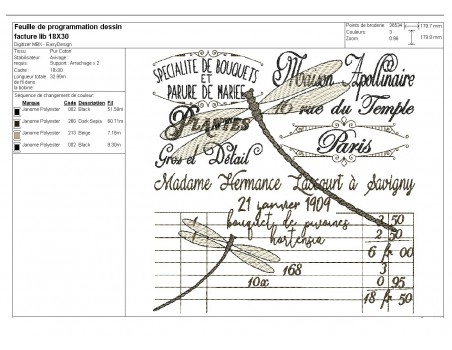 Feuille de programmation dessin
facture lib 18X30
Digitizer MBX - EasyDesign
Tissu : Pur Coton
Stabilisateur Avivage
requis : Support : Arrachage x 2
Cadre : 18x30
Longueur totale 32.09m
de fil dans
la bobine
Points de broderie 36534
Couleurs 3
Zoom 0.98
179.7 mm
179.8 mm
Séquence de changement de couleur :
Marque Code Description Fil
Janome Polyester 002 Black 51.59m
Janome Polyester 280 Dark Sepia 60.71m
Janome Polyester 213 Beige 7.16m
Janome Polyester 002 Black 9.30m
SPÉCIALITÉ DE BOUQUETS
ET
PARURE DE MARIÉE
PLANTES
Gros et Détail
Maison Apollinaire
16 rue du Temple
Paris
Madame Hermance Lacourt à Savigny
21 janvier 1909
bouquets de pivoines
hortensia
3 50
2 50
6 fr 00
168 3
10x 0 95
18 fr 50